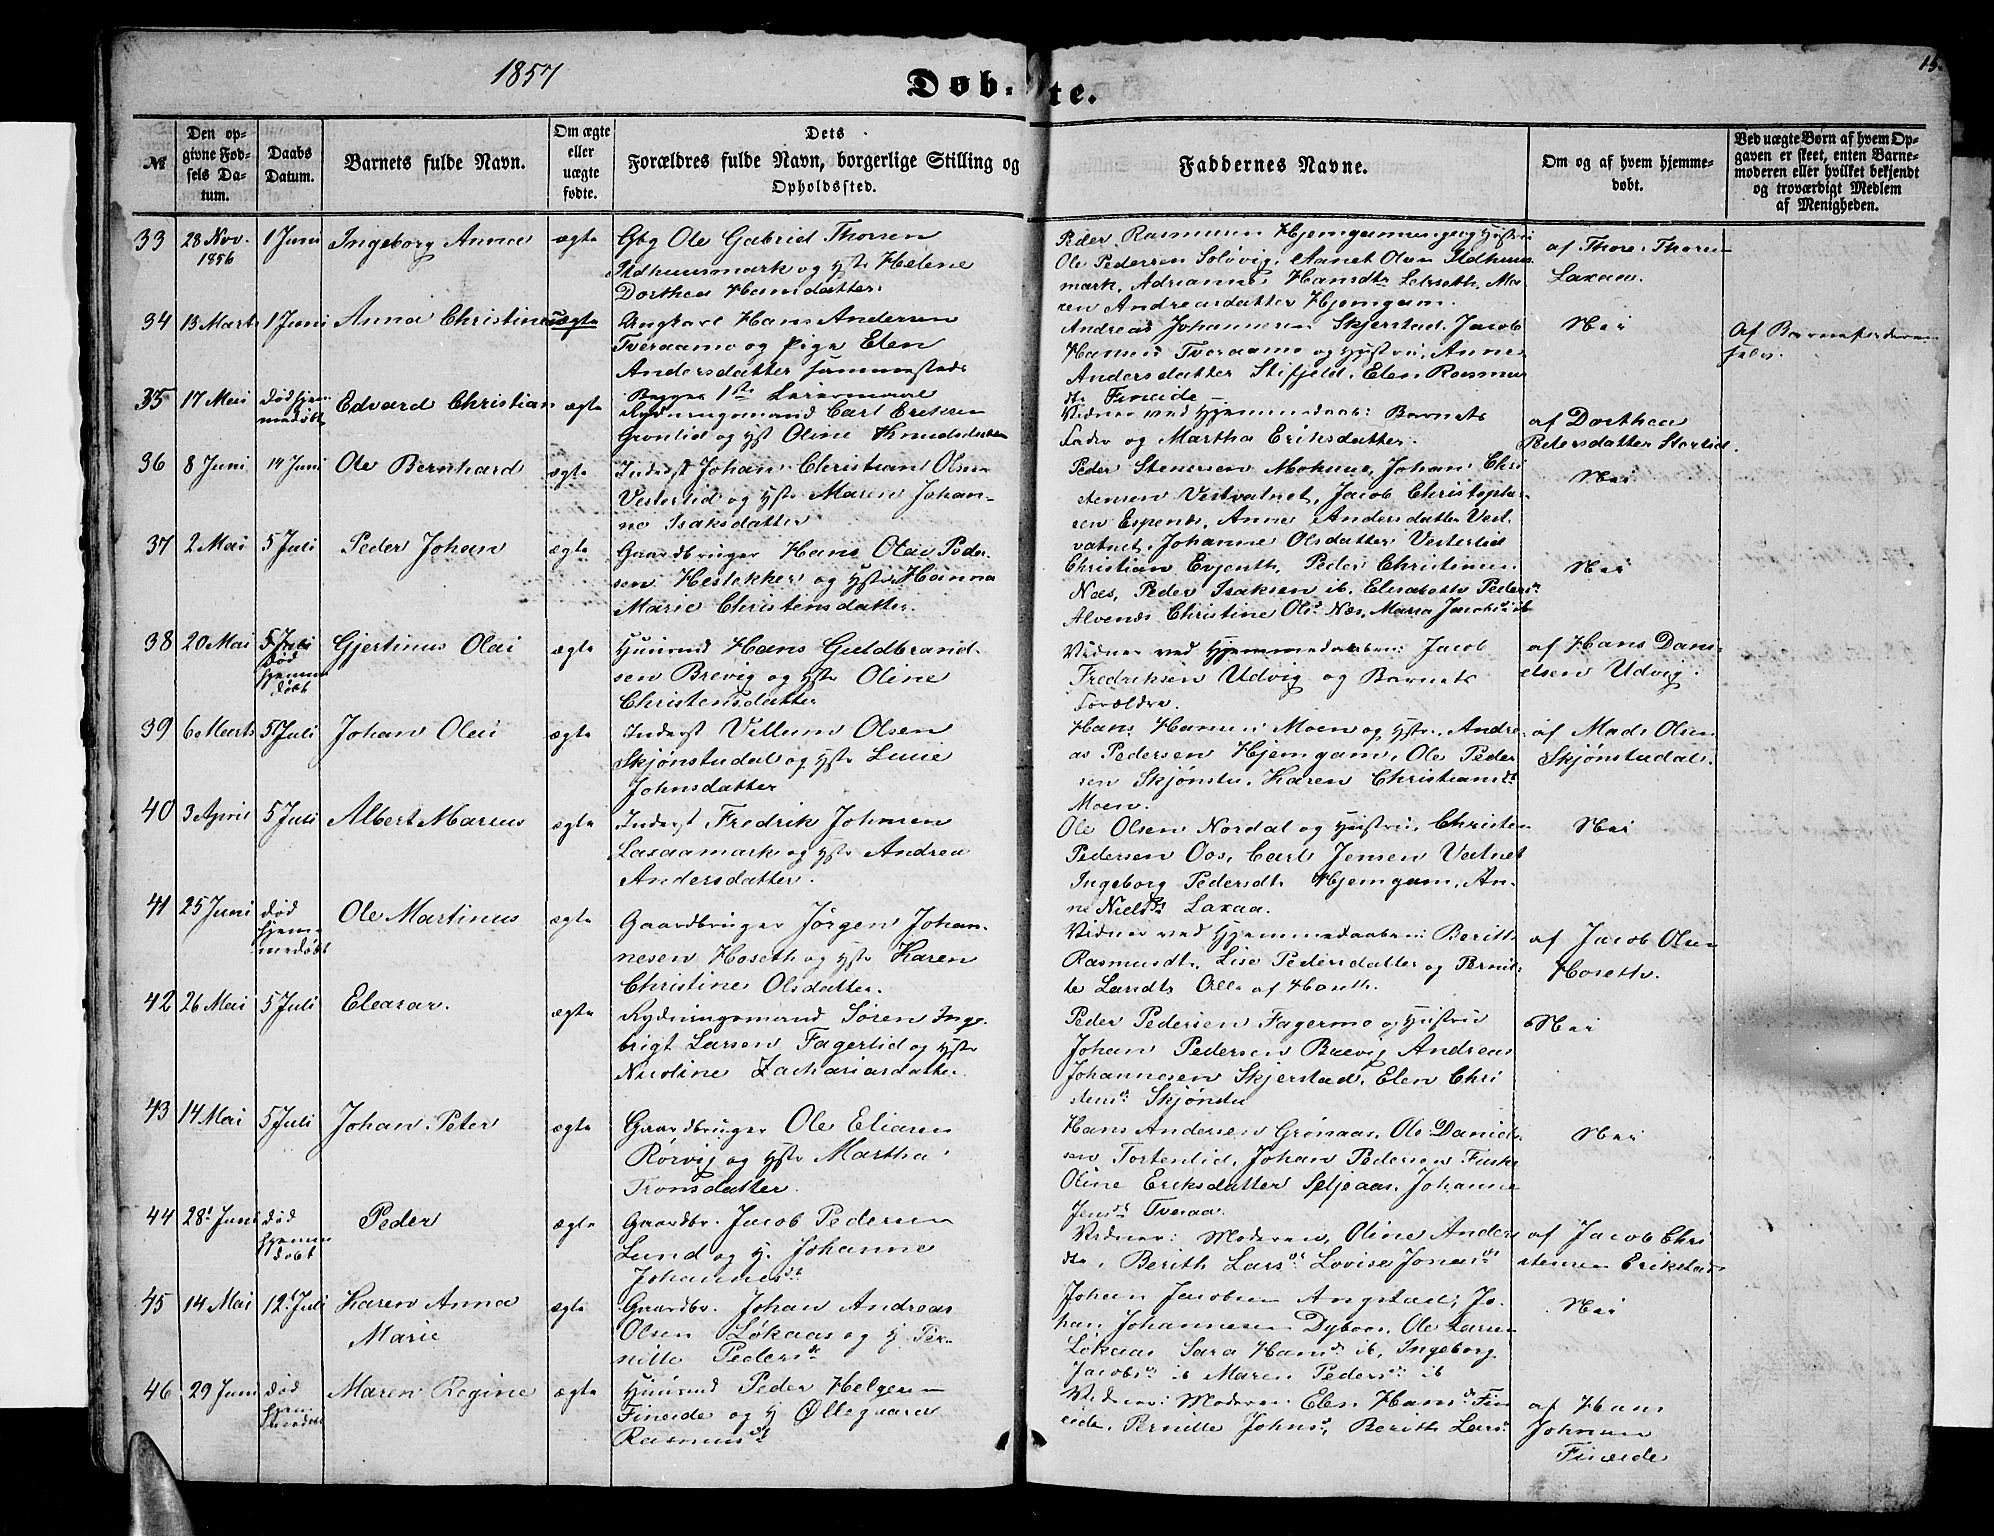 1857
Døb-te.
15.
№
Den op-
givne Fød-
sels Da-
tum.
Daabs
Datum.
Barnets fulde Navn.
Om ægte
eller
uægte
fødte.
Dets
Forældres fulde Navn, borgerlige Stilling og
Opholdssted.
Faddernes Navne.
Om og af hvem hjemme-
døbt.
Ved uægte Børn af hvem Op-
gaven er skeet, enten Barne-
moderen eller hvilket bekjendt
og troværdigt Medlem
af Menigheden.
33 28 Nov. 1856
1 Juni
Ingeborg Anna
ægte
Gbg Ole Gabriel Thorsen
Ildhuusmark og Hstr Helene
Dorthea Hansdatter.
Peder Rasmusen Hjemgam og Hustru
Ole Pedersen Solvig, Aanet Olsen Ildhuus
mark, Adrianne Hansdtr Leirseth, Ma-
ren Andreasdatter Hjemgam.
af Thore Thorsen
Laxaa.
34 13 Marts
1 Juni
Anna Christine
uægte
Ungkarl Hans Andersen
Tveraamo og Pige Elen
Andersdatter sammesteds
Begges 1ste Leiermaal
Andreas Johannesen Skjerstad, Jacob
Hansen Tveraamo og Hustru, Anne
Andersdatter Stifjeld, Elen Rasmus
dtr Fineide
Nei
Af Barnefaderen
selv.
35 17 Mai
død hjem
medøbt
Edvard Christian
ægte
Rydningsmand Carl Eriksen
Grønlid og Hst Oline Knudsdatter
Vidner ved Hjemmedaab: Barnets
Fader og Martha Eriksdatter.
af Dorthea
Petersdatter Storlid.
36 8 Juni
14 Juni
Ole Bernhard
ægte
Inderst Johan Christian Olsen
Vesterlid og Hstr Maren Johan-
ne Isaksdatter
Peder Stenersen Mohuus, Johan Chri
stensen Vestvatnet, Jacob Christophe-
sen Espenes, Anne Andersdatter Vest
vatnet, Johanne Olsdatter Vesterlid
Nei
37 2 Mai
5 Juli
Peder Johan
ægte
Gaardbruger Hans Olai Peder-
sen Hestekker og Hstr Hanna
Marie Christensdatter.
Christian Evjenth, Peder Christensen
Næs, Peder Isaksen ib, Elisabeth Peders dr
Alvenes Christine Ols dr Næs, Maria Jacobs dr ib
Nei
38 20 Mai
5 Juli
død
hjemme
døbt
Gjertinus Olai
ægte
Huusmd Hans Guldbrand-
sen Brevig og Hstr Oline
Christensdatter
Vidner ved Hjemmedaaben: Jacob
Fredriksen Udvig og Barnets
Forældre.
af Hans Dani-
elsen Udvig.
39 6 Marts
5 Juli
Johan Olai
ægte
Inderst Villum Olsen
Skjønstudal og Hstr Luise
Johnsdatter
Hans Hansen Moen og Hstr, Andre
as Pedersen Hjemgam, Ole Peder
sen Skjønstu, Karen Christians dr
Moen.
af Mads Olsen
Skjønstudal.
40 3 April
5 Juli
Albert Marius
ægte
Inderst Fredrik Johnsen
Laxaamark og Hstr Andrea
Andersdatter.
Ole Olsen Nordal og Hustru, Christen
Pedersen Oos, Carl Jensen Vatnet
Ingeborg Pedersdtr Hjemgam, An-
ne Nielsdr Laxaa.
Nei
41 25 Juni
død
hjem-
medøbt
Ole Martinus
ægte
Gaardbruger Jørgen Johan-
nesen Hoseth og Hstr Karen
Christine Olsdatter.
Vidner ved Hjemmedaaben: Berith
Rasmusdtr, Lise Pedersdatter og Pernil-
le Larsdtr Alle af Hoseth.
af Jacob Olsen
Hoseth.
42 26 Mai
5 Juli
Eleasar.
ægte
Rydningsmand Søren Inge-
brigt Larsen Fagerlid og Hstr
Nicoline Zachariasdatter.
Peder Pedersen Fagermo og Hustru
Johan Pedersen Brevig, Andreas
Johannesen Skjerstad, Elen Chri
stens dr Skjønstu
Nei
43 14 Mai
5 Juli
Johan Peter
ægte
Gaardbruger Ole Eliasen
Rørvig og Hstr Martha
Tronsdatter.
Hans Andersen Grønaas, Ole Daniel-
sen Tortenlid, Johan Pedersen Fuske
Oline Eriksdatter Seljeaas, Johanne
Jens dr Tveraa.
Nei
44 28 Juni
død
hjemme
døbt
Peder
ægte
Gaardbr. Jacob Pedersen
Lund og H. Johanne
Johannes dr
Vidner: Moderen, Oline Anders
dtr, Berith Lars dr Lovise Jonas dr
af Jacob Chri
stensen Erikstad
45 14 Mai
12 Juli
Karen Anna
Marie
ægte
Gaardbr. Johan Andreas
Olsen Løkaas og H Per-
nille Peders dr
Johan Jacobsen Angstad, Jo-
han Johannesen Dybvos, Ole Larsen
Løkaas Sara Hans dr ib, Ingeborg
Jacobs dr ib Maren Peders dr ib
Nei
46 29 Juni
død
hjem-
medøbt
Maren Regine
ægte
Huusmd Peder Helgesen
Fineide og H Øllegaard
Rasmus dr
Vidner: Moderen Elen Hans dr Fin
eide, Pernille Johns dr, Berith Lars dr
af Hans
Johnsen
Fineide